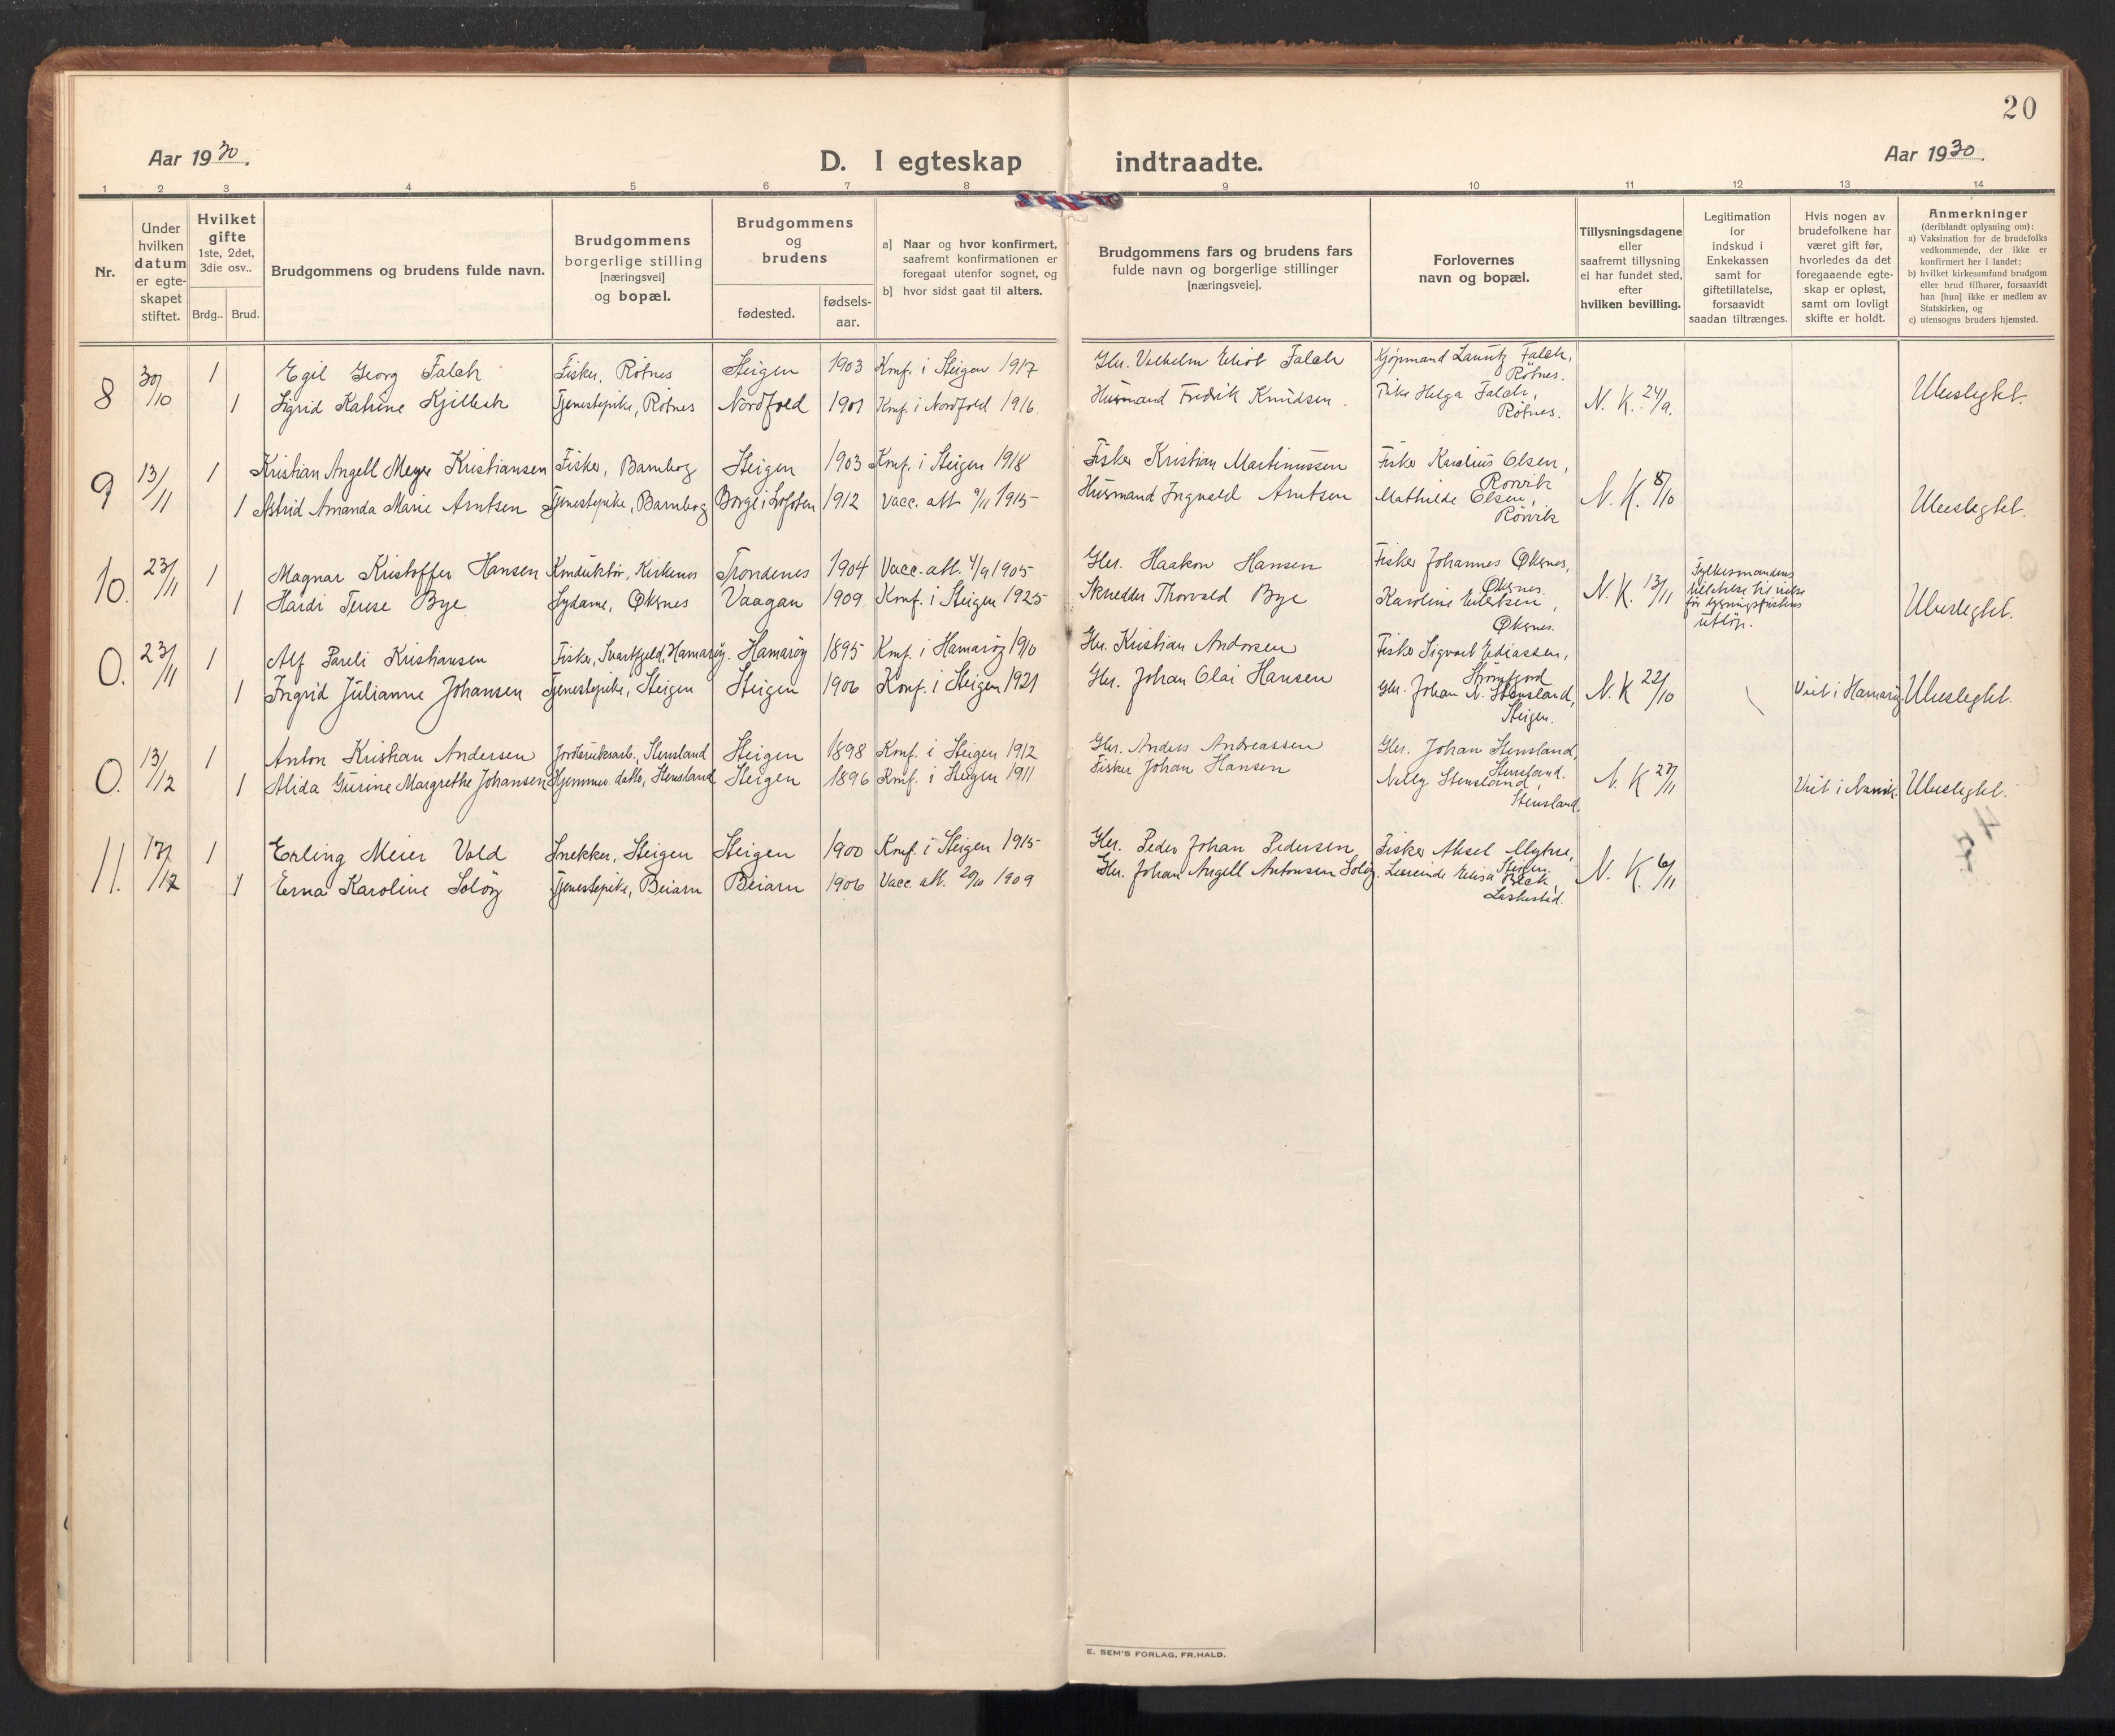 20
Aar 1930.
D. I egteskap indtraadte.
Aar 1930.
1 2 3 4 5 6 7 8 9 10 11 12 13 14
Nr.
Under hvilken datum er egte-skapet stiftet.
Hvilket gifte 1ste, 2det, 3die osv..
Brdg.. Brud.
Brudgommens og brudens fulde navn.
Brudgommens borgerlige stilling [næringsvei] og bopæl.
Brudgommens og brudens
fødested.
fødsels-aar.
a] Naar og hvor konfirmert, saafremt konfirmationen er foregaat utenfor sognet, og
b] hvor sidst gaat til alters.
Brudgommens fars og brudens fars fulde navn og borgerlige stillinger [næringsveie].
Forlovernes navn og bopæl.
Tillysningsdagene eller saafremt tillysning ei har fundet sted, efter hvilken bevilling.
Legitimation for indskud i Enkekassen samt for giftetillatelse, forsaavidt saadan tiltrænges.
Hvis nogen av brudefolkene har været gift før, hvorledes da det foregaaende egte-skap er opløst, samt om lovligt skifte er holdt.
Anmerkninger (deriblandt oplysning om):
a) Vaksination for de brudefolks vedkommende, der ikke er konfirmert her i landet;
b) hvilket kirkesamfund brudgom eller brud tilhører, forsaavidt han [hun] ikke er medlem av Statskirken, og
c) utensogns bruders hjemsted.
8 30/10 1 Egil Georg Falch Fisker, Rötnes Steigen 1903 Konf. i Steigen 1917 Gbr. Vilhelm Falch Falch, Rötnes.
1 Sigrid Katrine Tjenestepike, Rötnes Nordfold 1901 Konf. i Nordfold 1916. Husmand Fredrik Knudsen. Pike Helga Falch, Rötnes. N. K. 24/9. Ubeslegtet.
9 13/11 1 Kristian Angell Meyer Kristiansen Fisker, Bamborg Steigen 1903 Konf. i Steigen 1918 Fisker Kristian Martinussen Fisker Karelius Olsen, Rorvik
1 Astrid Amanda Marie Arntsen Tjenestepike, Bamborg Borge i Lofoten 1912 Vacc. att 9/11 1915 Husmand Ingvald Arntsen Mathilde Olsen, Rörvik N. K. 8/10 Ubeslegtet.
10. 23/11 1 Magnar Kristoffer Hansen Konduktör, Kirkenes Trondenes 1904 Vacc. att. 4/9 1905 Gbr. Haakon Hansen Fisker Johannes Øksnes, Øksnes.
1 Hardi Terese Bye Sydame, Øksnes Vaagan 1909 Konf. i Steigen 1925 Skredder Thorvald Bye Karoline Eilertsen, Øksnes. N. K. 13/11 Fylkesmandens tilladelse til vielse før lysningsfristens utløp. Ubeslegtet.
0. 23/11 1 Alf Pareli Kristiansen Fisker, Svartfjeld, Hamarøy. Hamarøy 1895 Konf. i Hamarøy 1910 Gbr. Kristian Andersen Fisker Sigvart
1 Ingrid Julianne Johansen Tjenestepike, Steigen Steigen 1906 Konf. i Steigen 1921 Gbr. Johan Olai Hansen Gbr. Johan N. Stensland, Steigen. N. K 22/10 Viet i Hamarøy. Ubeslegtet.
0. 13/12 1 Anton Kristian Andersen Jordbruksarb., Stensland Steigen 1898 Konf. i Steigen 1912 Gbr. Anders Andreassen Gbr. Johan Stensland, Stensland.
1 Alida Gurine Margrethe Johansen Hjemmev. datter, Stensland Steigen 1896 Konf. i Steigen 1911 Fisker Johan Hansen Nelly Stensland, Stensland. N. K 27/11 Viet i Narvik. Ubeslegtet.
11. 17/12 1 Erling Meier Vold Snekker, Steigen Steigen 1900 Konf. i Steigen 1915 Gbr. Peder Johan Pedersen Fisker Aksel Myhre, Steigen.
1 Erna Karoline Soløy Tjenestepike, Beiarn Beiarn 1906 Vacc. att. 20/10 1909 Gbr. Johan Angell Antonsen Soløy. Lærerinde Elisa Leskestad. N. K. 6/11
E. SEM'S FORLAG, FR.HALD.